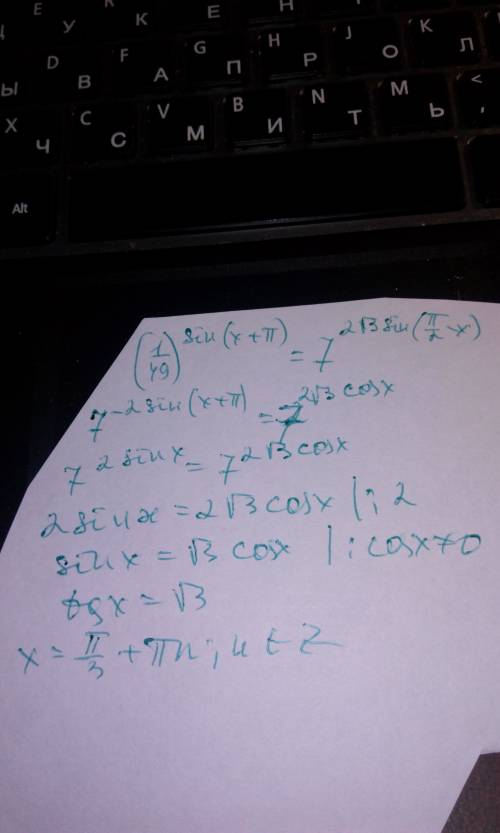 E К Е Н
У
D F G H J K
Ы В А П Р О Л
X C V B N M <
Ч С М И Т Ь ,
Alt
(1/49)^sin(x+π) = 7^2√3 sin(π/2-x)
7^-2sin(x+π) = 7^2√3 cosx
7^2sinx = 7^2√3 cosx
2sinx = 2√3 cosx |:2
sinx = √3 cosx |:cosx≠0
tgx = √3
x = π/3 + πn; n ∈ Z